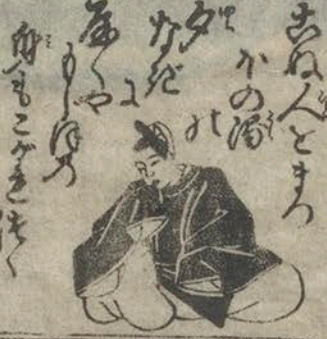 こぬ人をまつ
ほの浦の
夕
なぎ
に
やくや
もしほの
身もこがれつゝ